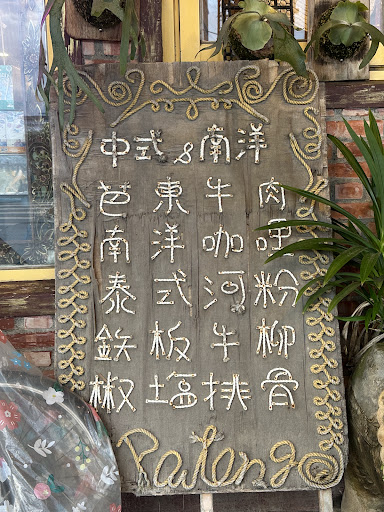 中式&南洋
芭東牛肉
南洋咖哩
泰式河粉
鉄板牛柳
椒塩排骨
Patong